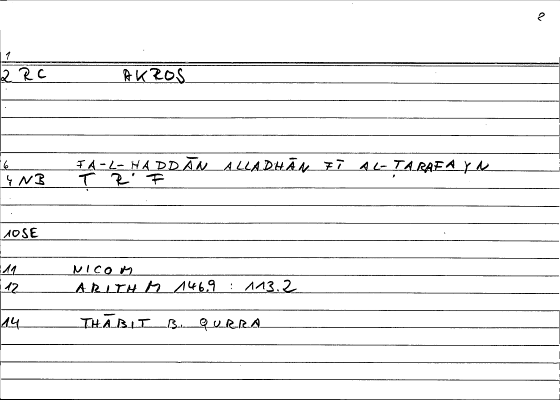 e
1
2 RC AKROS
6 FA-L-ḤADDĀN ALLADHĀN FĪ AL-ṬARAFAYN
4 NB Ṭ R F
10SE
11 NICOM
12 ARITHM 146.9 : 113.2
14 THĀBIT B. QURRA